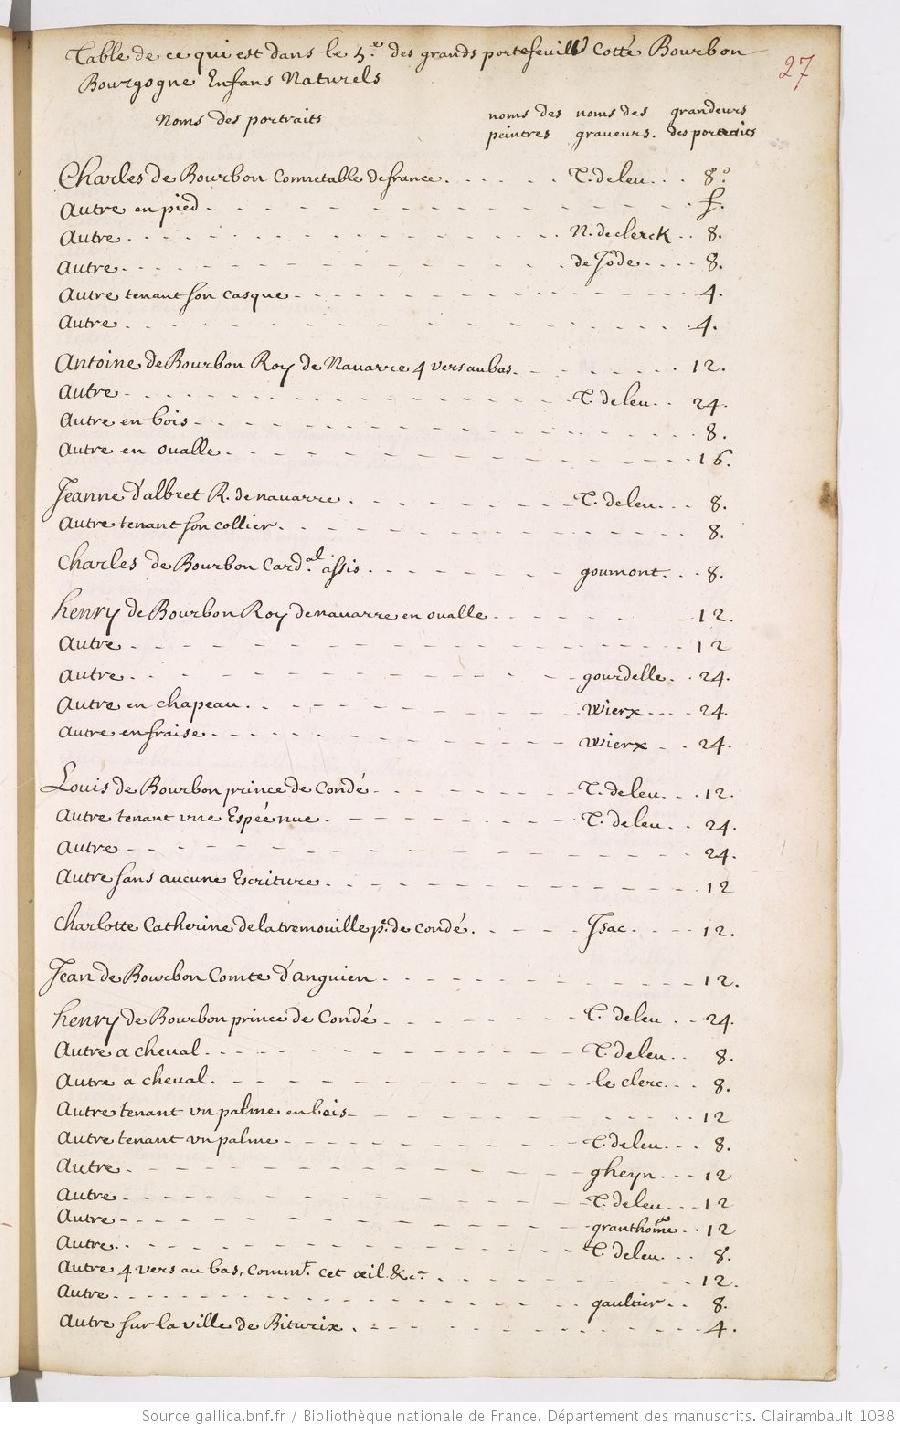 Table de ce qui est dans le 5.e des grands portefeuill. Cotté Bourbon
27
Bourgogne Enfans Naturels
Noms des portraits noms des peintres noms des graveurs. grandeurs des portraits
Charles de Bourbon Connetable de france. T. de leu. 8.o
Autre en pied. f.
Autre. N. de clerck 8.
Autre. de Jode 8.
Autre tenant son casque 4.
Autre. 4.
Antoine de Bourbon Roy de Navarre 4 vers au bas. 12.
Autre T. de leu 24.
Autre en bois 8.
Autre en ovalle. 16.
Jeanne d'albret R. de navarre. T. de leu 8.
Autre tenant son collier. 8.
Charles de Bourbon Card.al assis. goumont. 8.
henry de Bourbon Roy de navarre en ovalle 12.
Autre 12
Autre. gourdelle. 24.
Autre en chapeau. Wierx 24.
Autre en fraise. Wierx 24.
Louis de Bourbon prince de Condé T. de leu. 12.
Autre tenant une Espée nue. T. de leu. 24.
Autre 24.
Autre sans aucune Escriture. 12
Charlotte Catherine de la tremouille p.e de Condé. Jsac. 12.
Jean de Bourbon Comte d'anguien 12.
henry de Bourbon prince de Condé T. de leu 24.
Autre a cheval. T. de leu 8.
Autre a cheval. le clerc. 8.
Autre tenant vn palme en bois 12
Autre tenant vn palme T. de leu 8.
Autre. gheyn 12
Autre T. de leu 12
Autre granthome 12
Autre. T. de leu 8.
Autre 4 vers au bas, comm.t cet œil &c. 12.
Autre. gaultier 8.
Autre sur la ville de Biturix. 4.
Source gallica.bnf.fr / Bibliothèque nationale de France. Département des manuscrits. Clairambault 1038